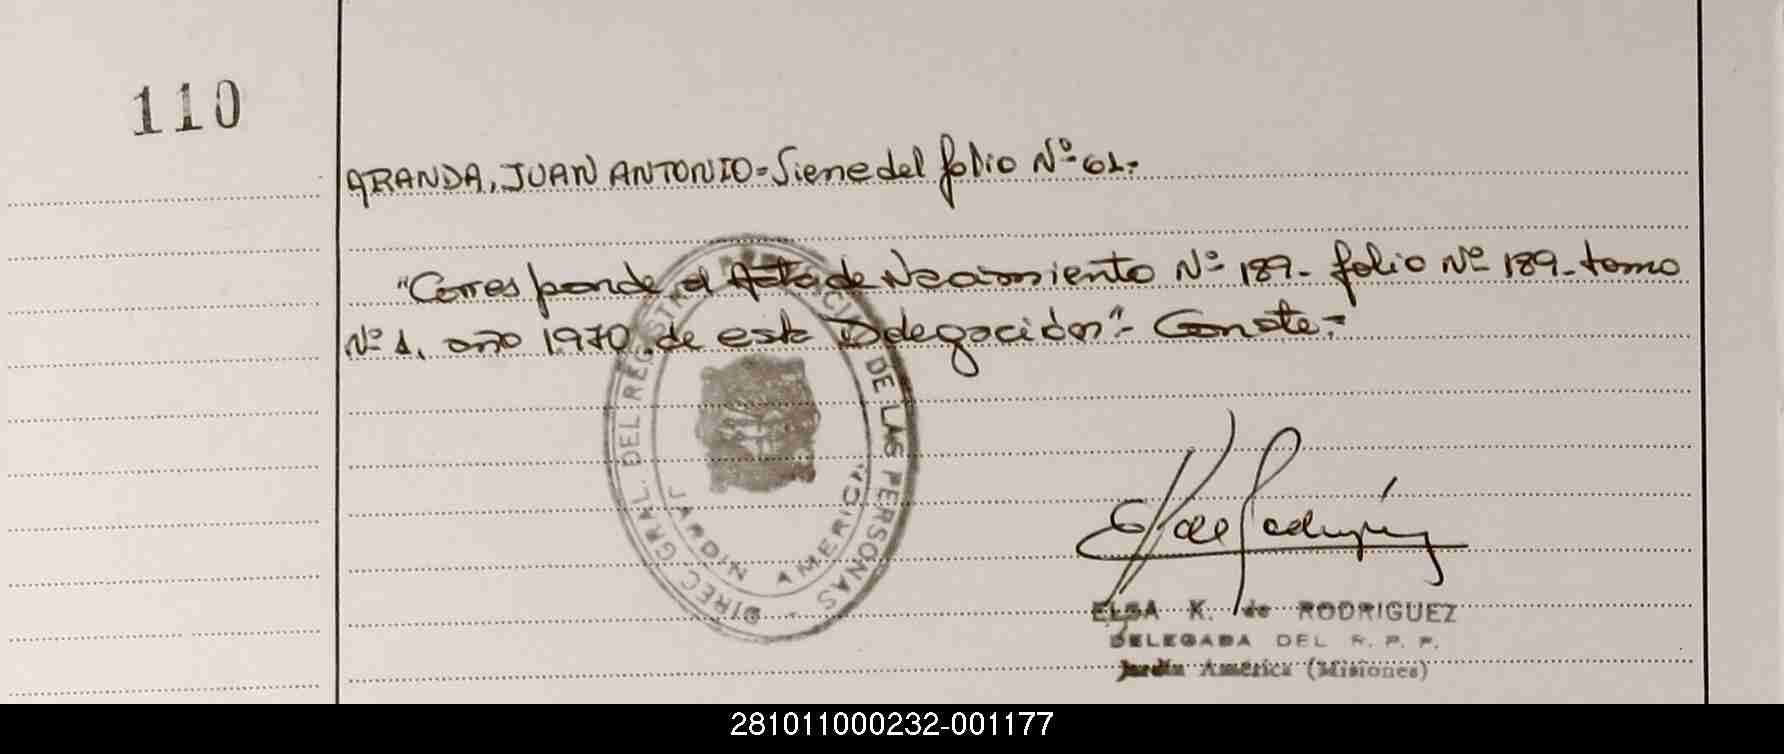 110
ARANDA, JUAN ANTONIO = Viene del folio Nº 61.-
"Corresponde al Acta de Nacimiento Nº 189 - folio Nº 189 - tomo
Nº 1. año 1970. de esta Delegación".- Conste.-
DIREC GRAL. DEL REGISTRO PROVINCIAL DE LAS PERSONAS
JARDIN AMERICA
ELSA K. de RODRIGUEZ
DELEGADA DEL R. P. P.
Jardín América (Misiones)
281011000232-001177